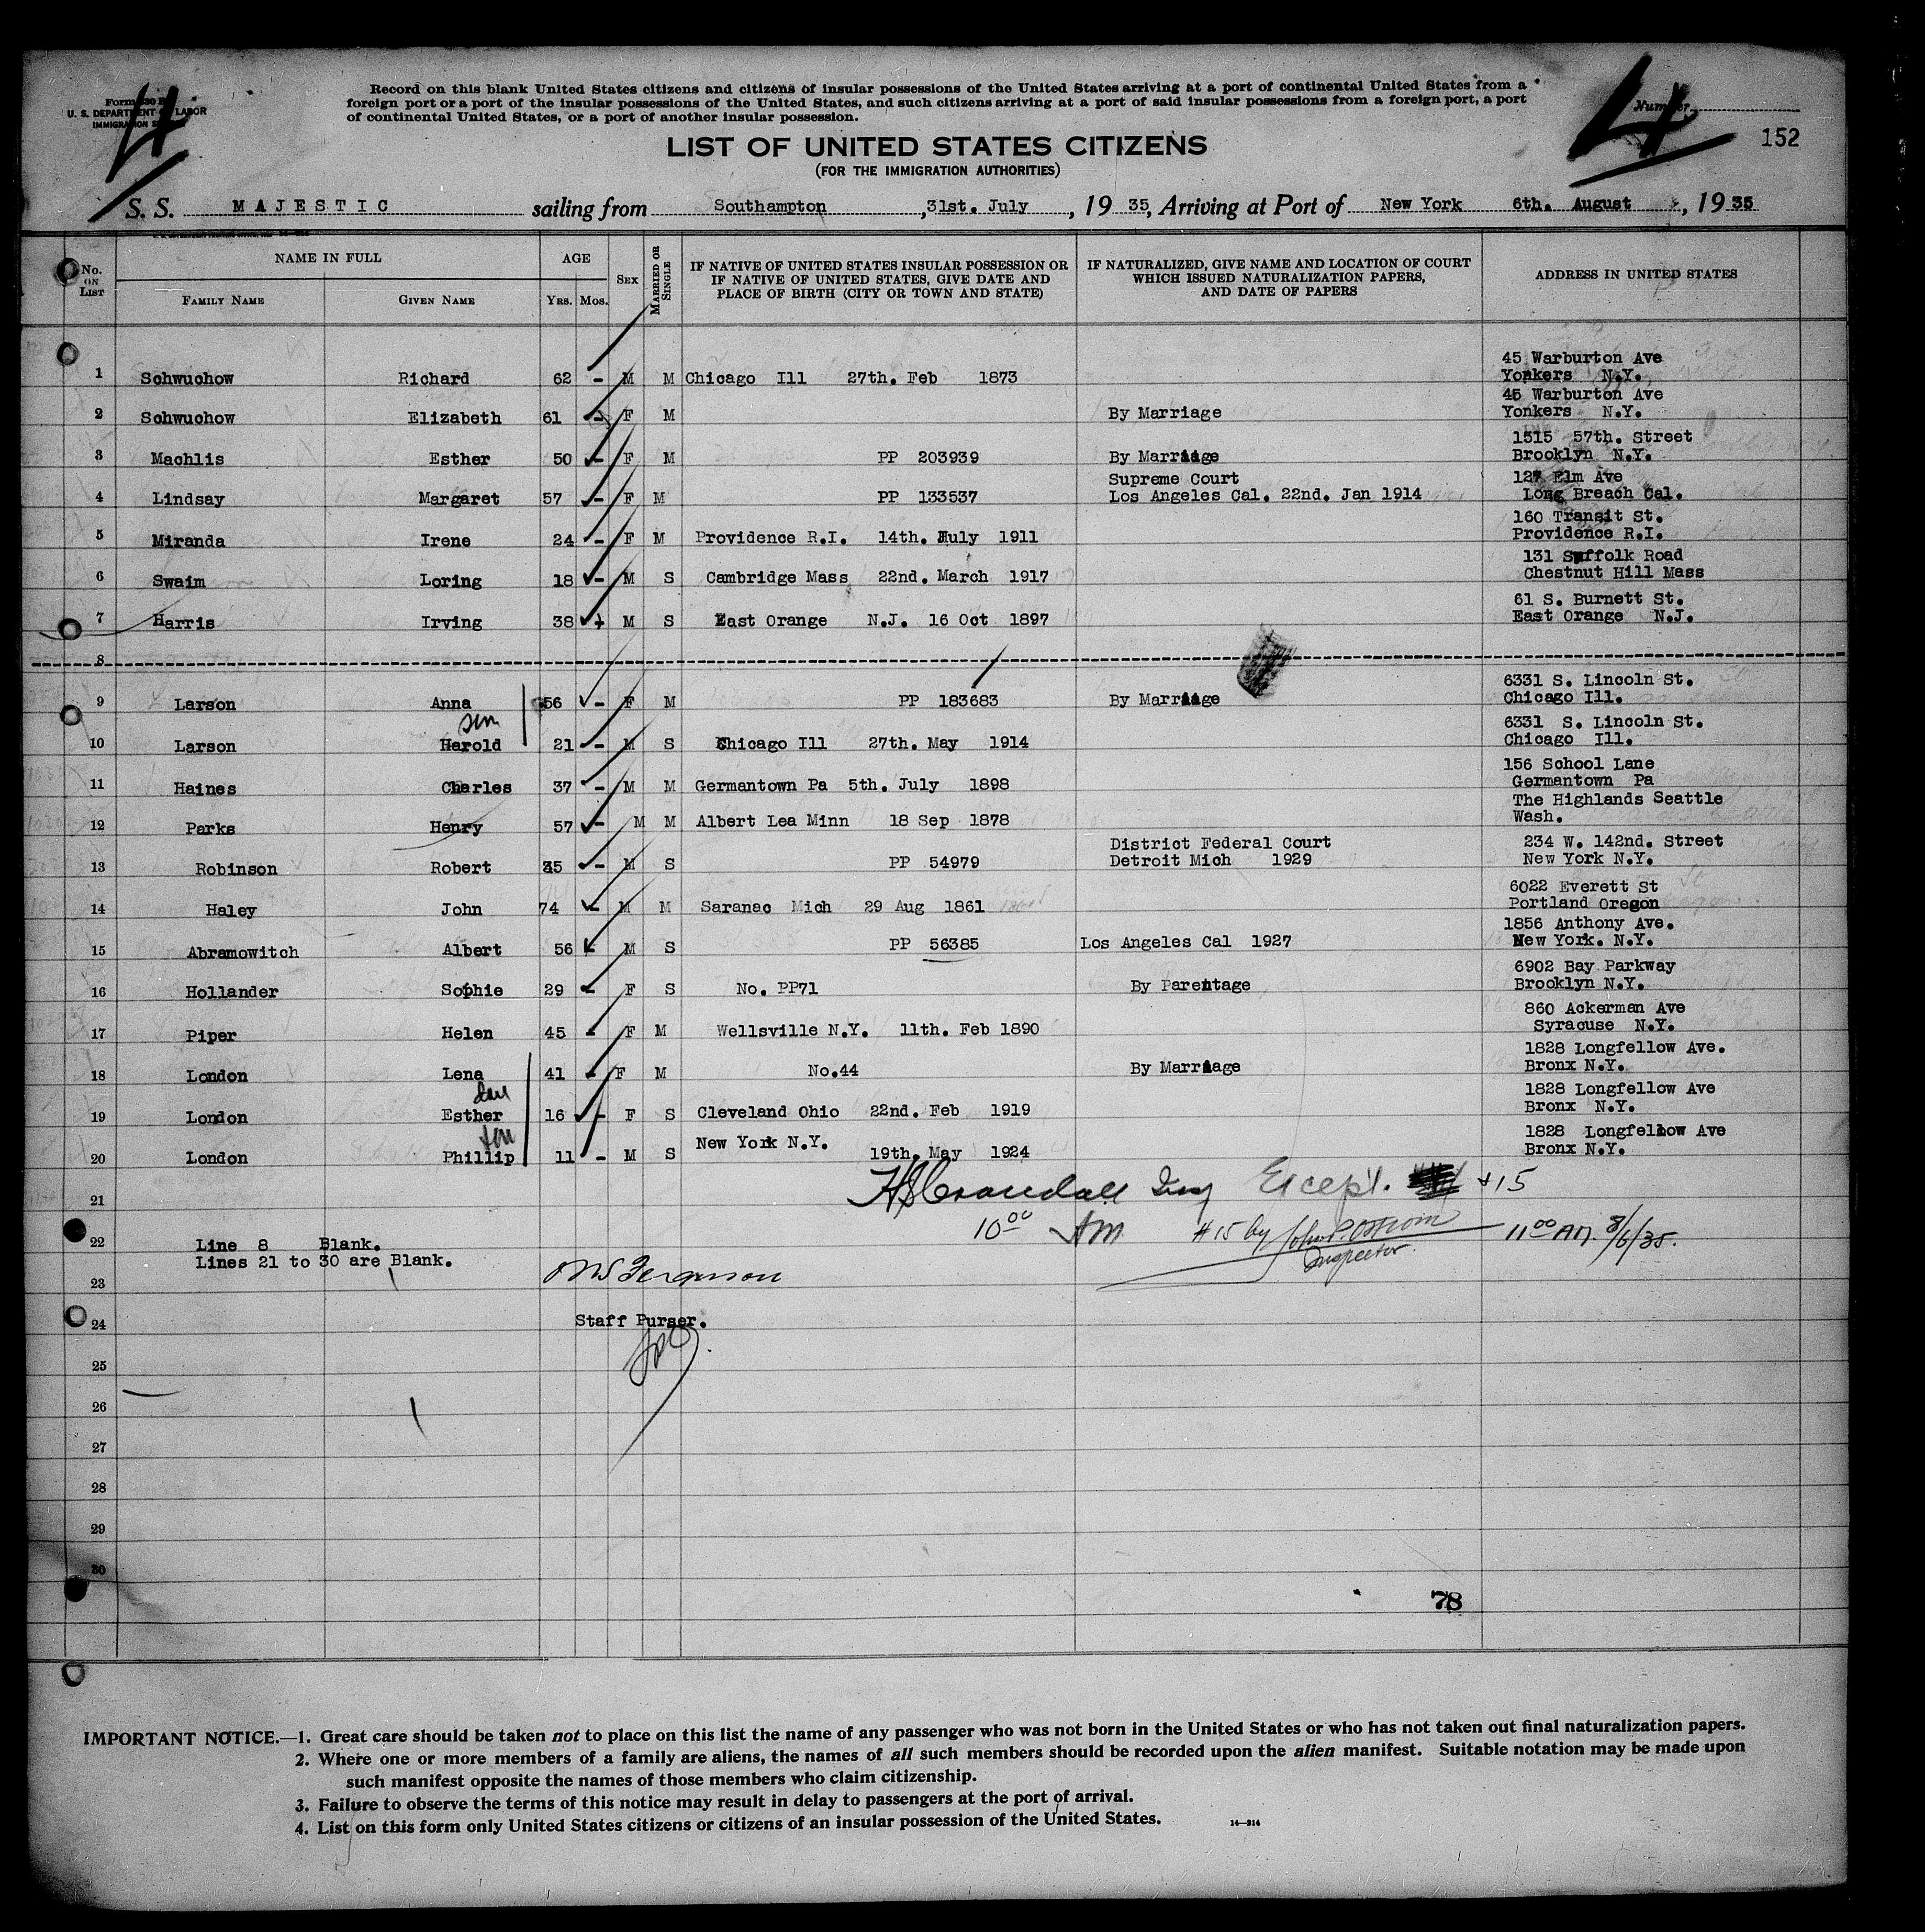 Record on this blank United States citizens and citizens of insular possessions of the United States arriving at a port of continental United States from a
foreign port or a port of the insular possessions of the United States, and such citizens arriving at a port of said insular possessions from a foreign port, a port
of continental United States, or a port of another insular possession.
Form
U. S. DEPARTMENT OF LABOR
IMMIGRATION
4
4
Number
152
LIST OF UNITED STATES CITIZENS
(FOR THE IMMIGRATION AUTHORITIES)
S. S. MAJESTIC sailing from Southampton, 31st. July, 1935, Arriving at Port of New York 6th. August, 1935
No. ON LIST
NAME IN FULL
FAMILY NAME GIVEN NAME
AGE
YRS. MOS.
SEX
MARRIED OR SINGLE
IF NATIVE OF UNITED STATES INSULAR POSSESSION OR
IF NATIVE OF UNITED STATES, GIVE DATE AND
PLACE OF BIRTH (CITY OR TOWN AND STATE)
IF NATURALIZED, GIVE NAME AND LOCATION OF COURT
WHICH ISSUED NATURALIZATION PAPERS,
AND DATE OF PAPERS
ADDRESS IN UNITED STATES
1 Schwuchow Richard 62 - M M Chicago Ill 27th. Feb 1873 45 Warburton Ave
Yonkers N.Y.
2 Schwuchow Elizabeth 61 - F M By Marriage 45 Warburton Ave
Yonkers N.Y.
3 Machlis Esther 50 - F M PP 203939 By Marriage 1515 57th. Street
Brooklyn N.Y.
4 Lindsay Margaret 57 - F M PP 133537 Supreme Court
Los Angeles Cal. 22nd. Jan 1914 127 Elm Ave
Long Breach Cal.
5 Miranda Irene 24 - F M Providence R.I. 14th. July 1911 160 Transit St.
Providence R.I.
6 Swaim Loring 18 - M S Cambridge Mass 22nd. March 1917 131 Suffolk Road
Chestnut Hill Mass
7 Harris Irving 38 M S East Orange N.J. 16 Oct 1897 61 S. Burnett St.
East Orange N.J.
8
9 Larson Anna 56 - F M PP 183683 By Marriage 6331 S. Lincoln St.
Chicago Ill.
son
10 Larson Harold 21 - M S Chicago Ill 27th. May 1914 6331 S. Lincoln St.
Chicago Ill.
11 Haines Charles 37 - M M Germantown Pa 5th. July 1898 156 School Lane
Germantown Pa
12 Parks Henry 57 - M M Albert Lea Minn 18 Sep 1878 The Highlands Seattle
Wash.
13 Robinson Robert 35 - M S PP 54979 District Federal Court
Detroit Mich 1929 234 W. 142nd. Street
New York N.Y.
14 Haley John 74 - M M Saranac Mich 29 Aug 1861 6022 Everett St
Portland Oregon
15 Abramowitch Albert 56 M S PP 56385 Los Angeles Cal 1927 1856 Anthony Ave.
New York. N.Y.
16 Hollander Sophie 29 - F S No. PP71 By Parentage 6902 Bay Parkway
Brooklyn N.Y.
17 Piper Helen 45 - F M Wellsville N.Y. 11th. Feb 1890 860 Ackerman Ave
Syracuse N.Y.
18 London Lena 41 - F M No.44 By Marriage 1828 Longfellow Ave.
Bronx N.Y.
dau
19 London Esther 16 - F S Cleveland Ohio 22nd. Feb 1919 1828 Longfellow Ave
Bronx N.Y.
son
20 London Phillip 11 - M S New York N.Y. 19th. May 1924 1828 Longfellow Ave
Bronx N.Y.
21 H Crandall Insp Except. #15
22 10 00 AM #15 by John P. Inspector 11 00 AM. 8/6/35.
Line 8 Blank.
Lines 21 to 30 are Blank.
23 Ferguson
24 Staff Purser.
25
26
27
28
29
30
78
IMPORTANT NOTICE.—1. Great care should be taken not to place on this list the name of any passenger who was not born in the United States or who has not taken out final naturalization papers.
2. Where one or more members of a family are aliens, the names of all such members should be recorded upon the alien manifest. Suitable notation may be made upon
such manifest opposite the names of those members who claim citizenship.
3. Failure to observe the terms of this notice may result in delay to passengers at the port of arrival.
4. List on this form only United States citizens or citizens of an insular possession of the United States.
14—314